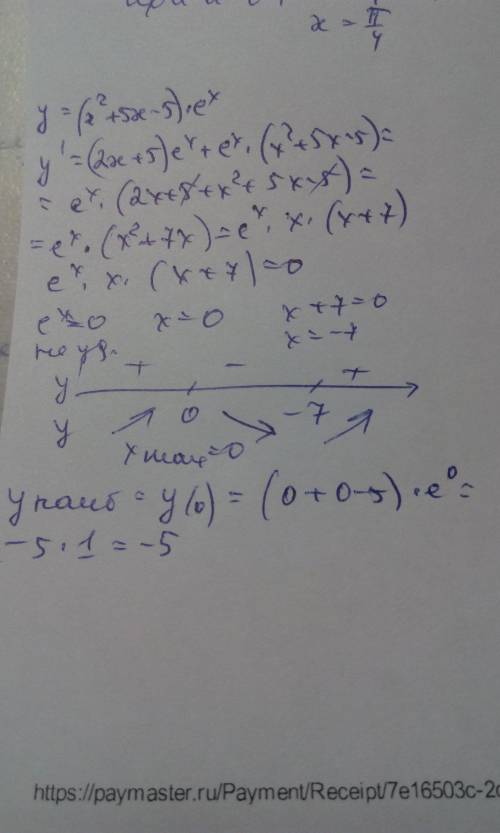 x = π/4
y = (x²+5x-5)·eˣ
y' = (2x+5)eˣ+eˣ·(x²+5x-5)=
= eˣ·(2x+5+x²+5x-5)=
=eˣ·(x²+7x)=eˣ·x·(x+7)
eˣ·x·(x+7)=0
eˣ=0 x=0 x+7=0
не уд. x=-7
+ - +
y
0 -7
y
x max=0
y наиб = y(0) = (0+0-5)·e⁰=
-5·1=-5
https://paymaster.ru/Payment/Receipt/7e16503c-2